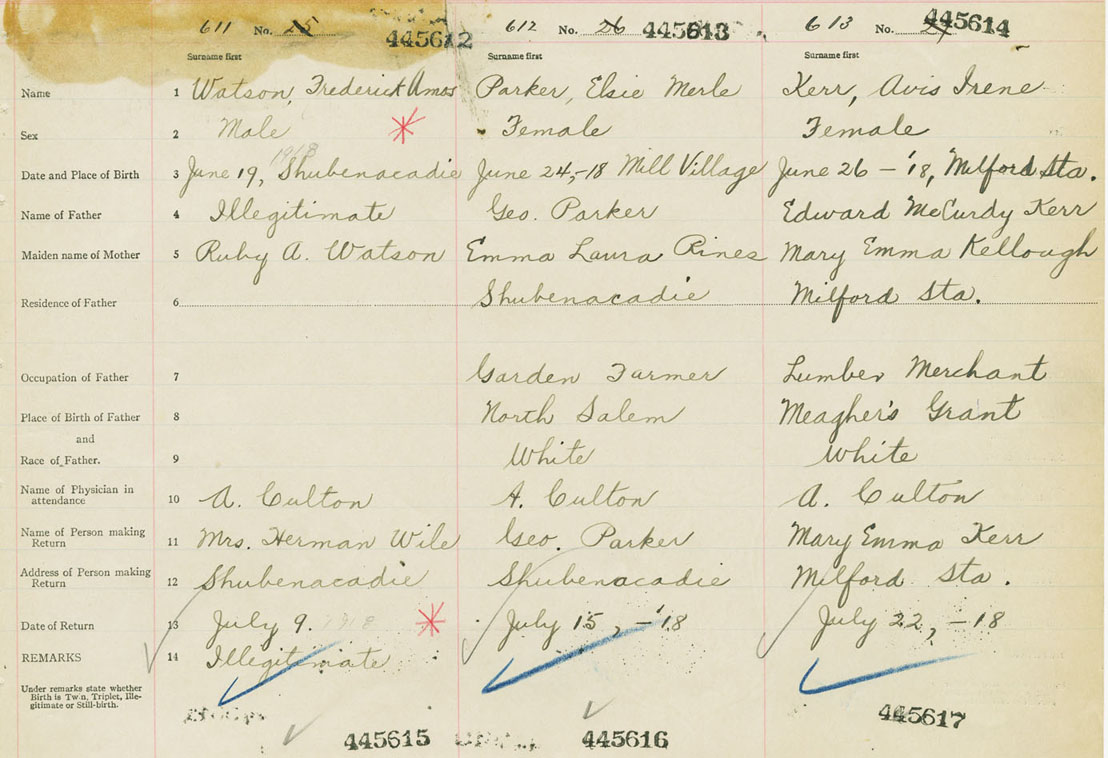 611 No. 25 445612 612 No. 26 445613 613 No. 27 445614
Surname first Surname first Surname first
Name 1 Watson, Frederick Amos Parker, Elsie Merle Kerr, Avis Irene
Sex 2 Male Female Female
1918
Date and Place of Birth 3 June 19, Shubenacadie June 24,-18 Mill Village June 26 - '18, Milford Sta.
Name of Father 4 Illegitimate Geo. Parker Edward McCurdy Kerr
Maiden name of Mother 5 Ruby A. Watson Emma Laura Rines Mary Emma Kellough
Residence of Father 6 Shubenacadie Milford Sta.
Occupation of Father 7 Garden Farmer Lumber Merchant
Place of Birth of Father 8 North Salem Meagher's Grant
and
Race of Father. 9 White White
Name of Physician in
attendance 10 A. Culton A. Culton A. Culton
Name of Person making
Return 11 Mrs. Herman Wile Geo. Parker Mary Emma Kerr
Address of Person making
Return 12 Shubenacadie Shubenacadie Milford Sta.
Date of Return 13 July 9. 1918 July 15, -'18 July 22, -18
REMARKS 14 Illegitimate
Under remarks state whether
Birth is Twin, Triplet, Ille-
gitimate or Still-birth.
445615 445616 445617